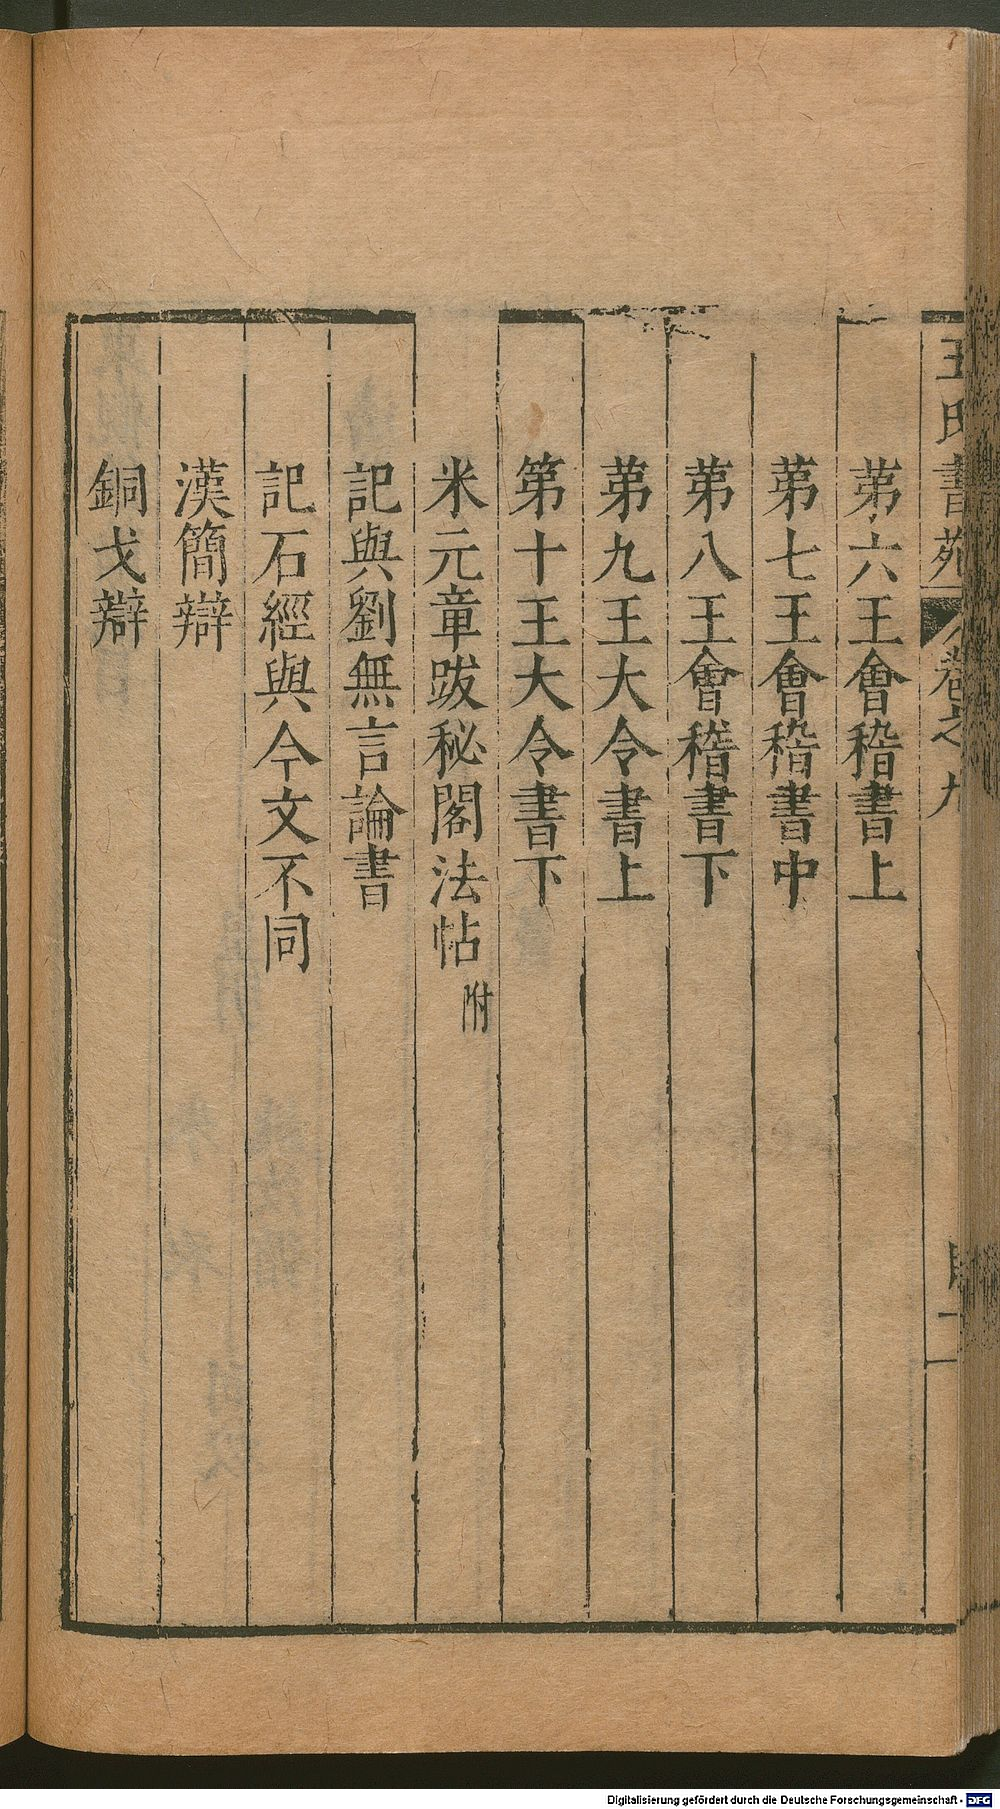 王氏書苑 卷之九
苐六王會稽書上
苐七王會稽書中
苐八王會稽書下
苐九王大令書上
第十王大令書下
米元章跋秘閣法帖 附
記與劉無言論書
記石經與今文不同
漢簡辯
銅戈辯
Digitalisierung gefördert durch die Deutsche Forschungsgemeinschaft - DFG